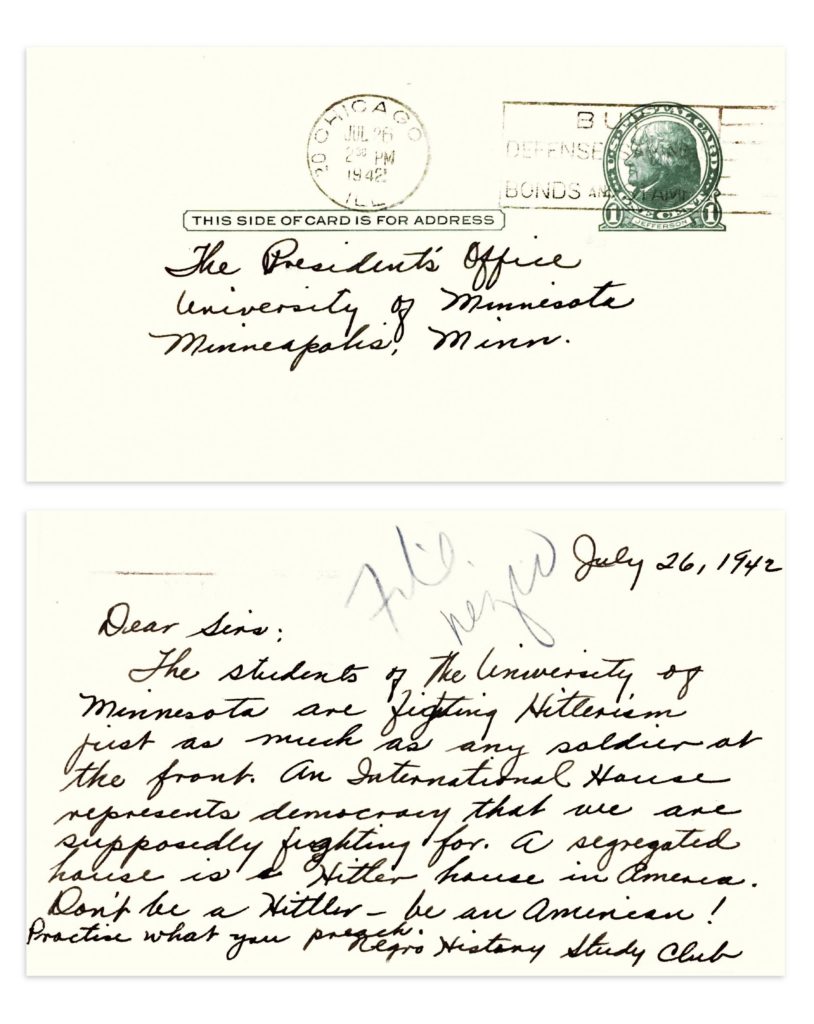 CHICAGO
20
JUL 26
2 30 PM
1942
ILL
BU
DEFENSE
BONDS AND
U.S. POSTAL CARD
1 ONE CENT 1
JEFFERSON
THIS SIDE OF CARD IS FOR ADDRESS
The President's Office
University of Minnesota
Minneapolis, Minn.
File.
negro
July 26, 1942
Dear Sirs:
The students of the University of
Minnesota are figting Hitlerism
just as much as any soldier at
the front. An International House
represents democracy that we are
supposedly fighting for. A segregated
house is a Hitler house in America.
Don't be a Hittler – be an American!
Practise what you preach.
Negro History Study Club